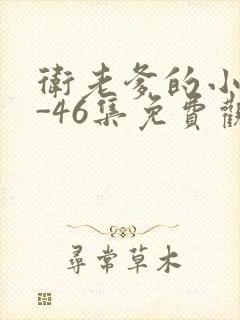 衛老爹的小
-46集免費觀
尋常草木